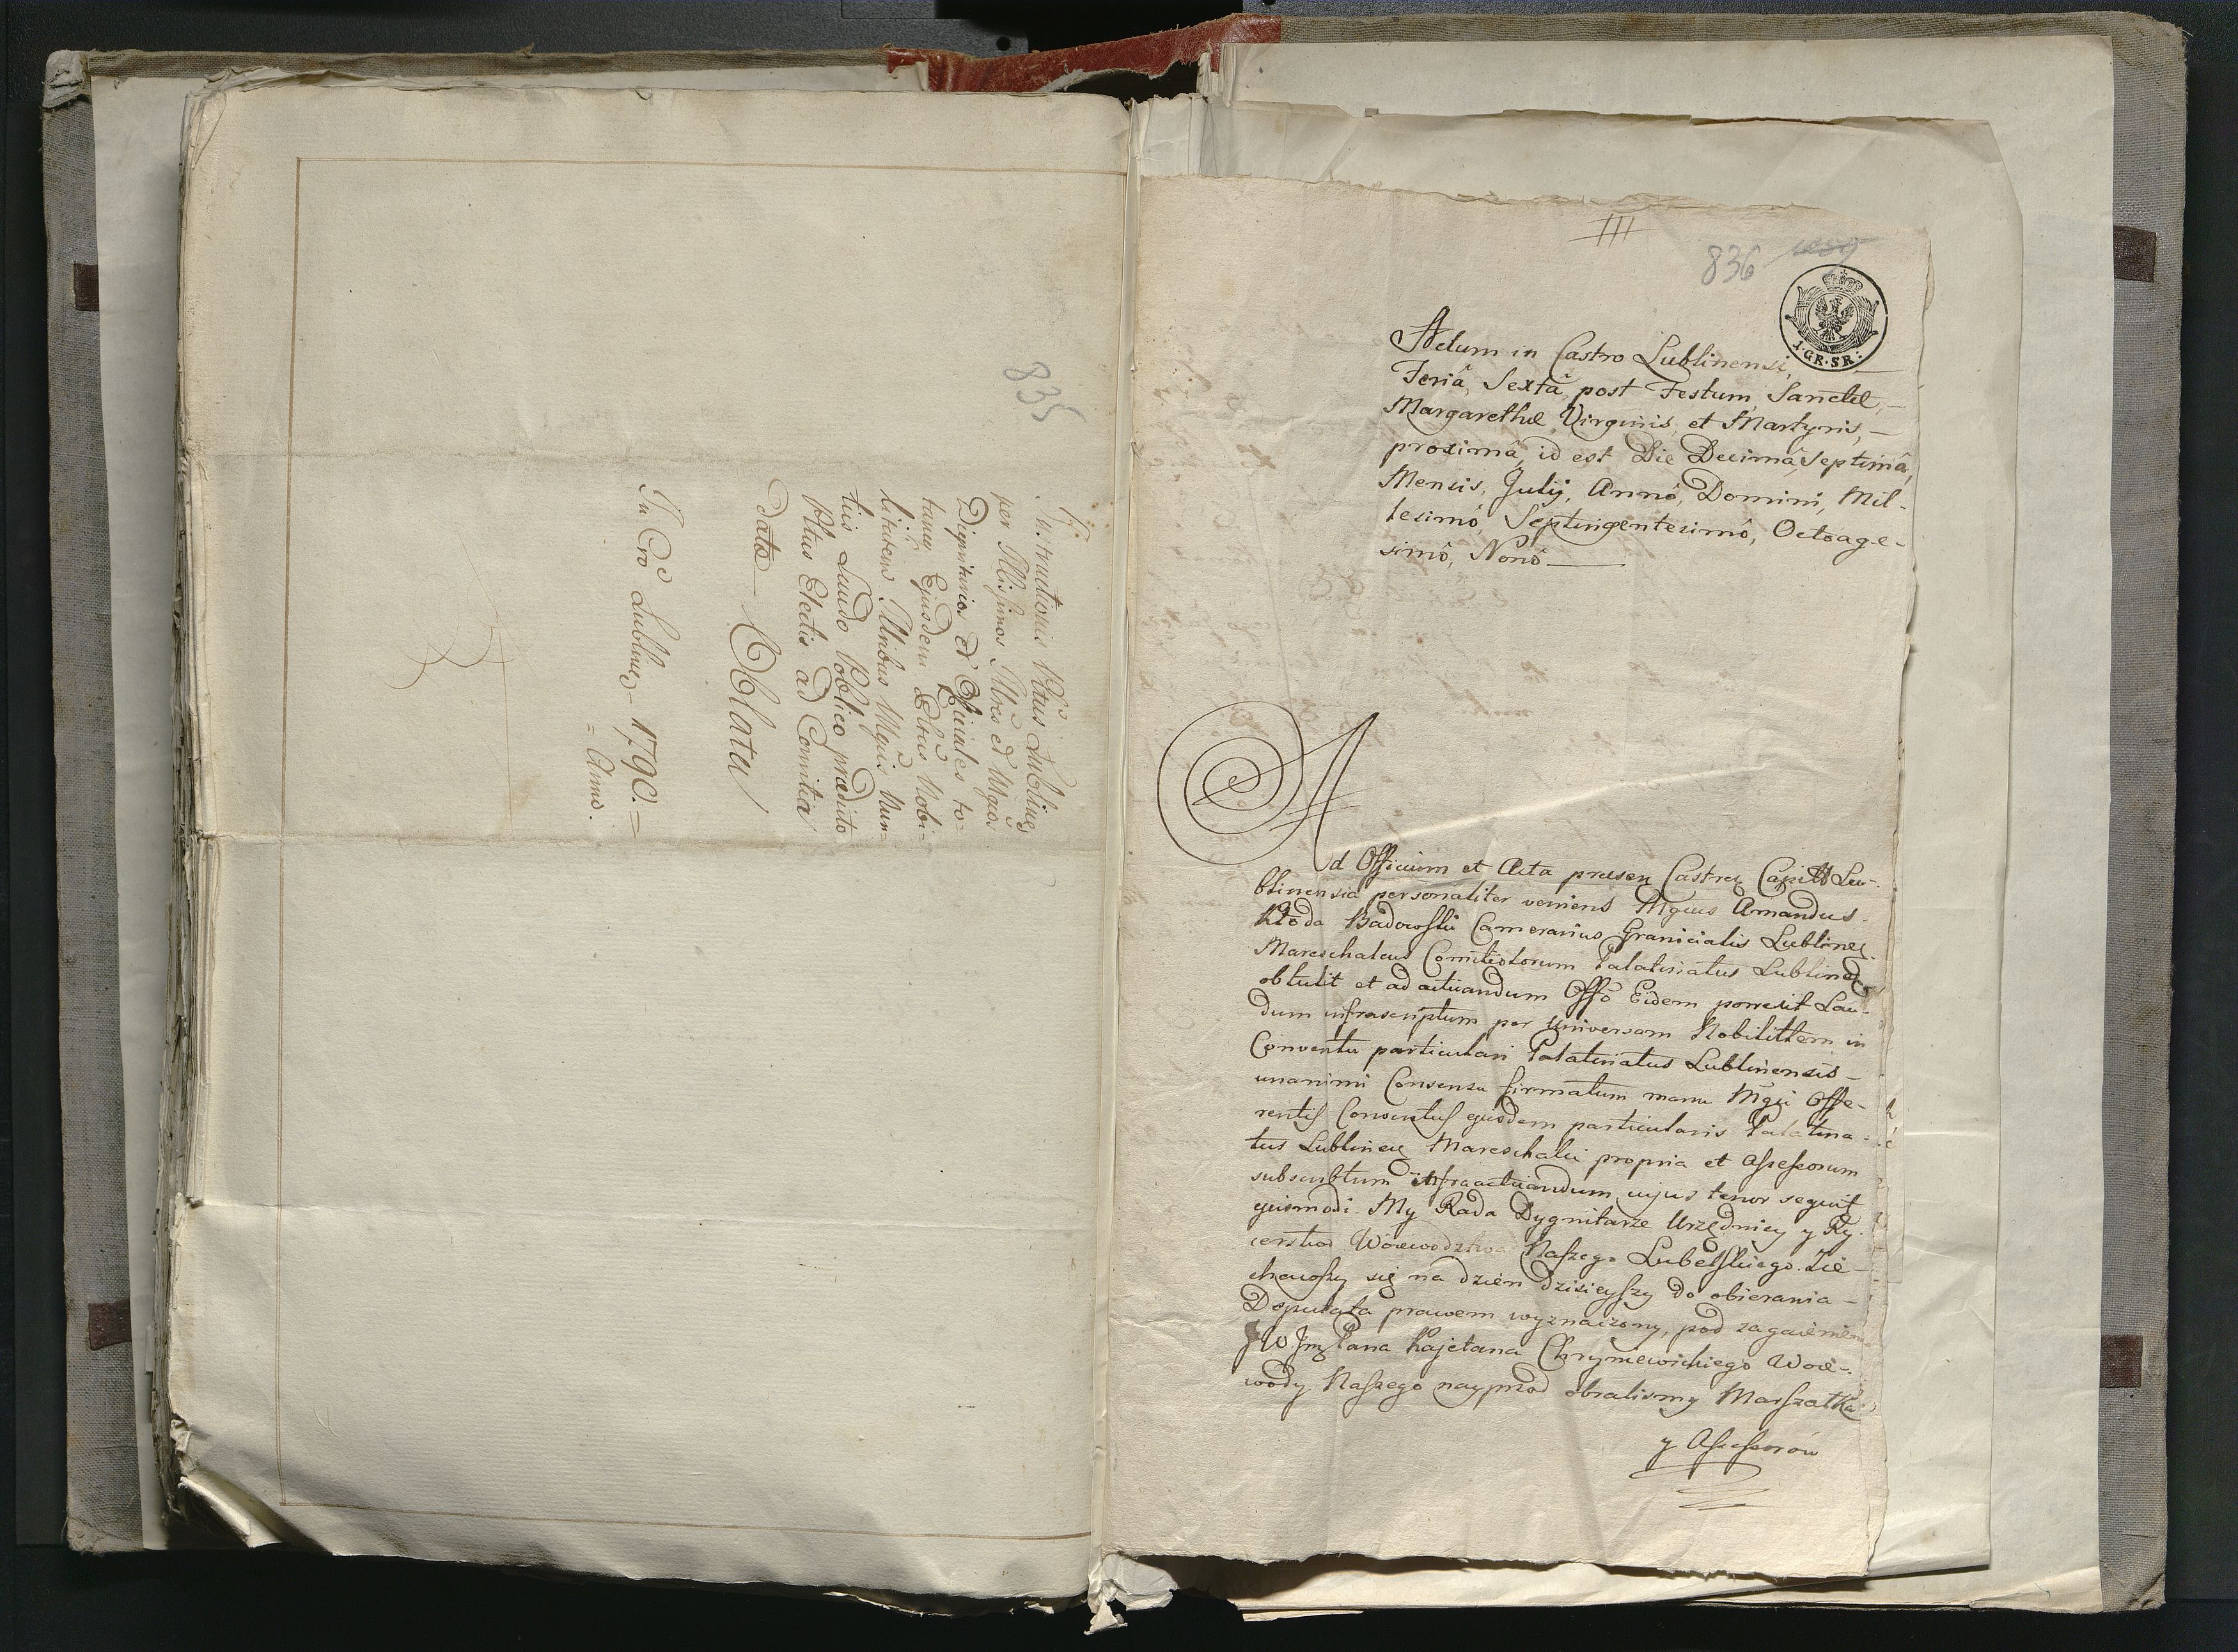 835
Instructionis Pltus Lubline
per Illssimos Illres et Mgcos
Dignitarios et Officiales to-
tamq Ejusdem Pltus Nobi-
litatem Illribus Mgcis Nun-
tiis Laudo Publico prævio
Pltus Electis ad Comitia
data
Oblata
In Cro Lublinen 1790.
= Anno.
III
836
1. GR. SR:
Actum in Castro Lublinensi,
Feriâ, Sextâ, post Festum, Sanctæ,
Margarethæ Virginis, et Martyris,
proximâ, id est Die Decimâ Septimâ,
Mensis, Julij, Annô, Domini, Mil-
lesimô, Septingentesimô, Octoage-
simô, Nonô
Ad Officium et Acta præsen Castren Capitt Lu-
blinensia personaliter veniens Mgcus Amandus
Kłoda Badowski Camerarius Granicialis Lublinen
Mareschalcus Comitiolorum Palatinatus Lublinen
obtulit et ad acticandum Offo Eidem porrexit Lau-
dum infrascriptum per Universam Nobilittem in
Conventu particulari Palatinatus Lublinensis
unanimi Consensu firmatum manu Mgci Offe-
rentis Conventus ejusdem particularis Palatina-
tus Lublinen Mareschalci propria et Assessorum
subscribtum infra acticandum cujus tenor sequit
ejusmodi. My Rada Dygnitarze Urzędnicy y Ry-
cerstwo Woiewodztwa Naszego Lubelskiego. Zie-
chawszy się na dzień dzisieyszy do obierania
Deputata prawem wyznaczony, pod zagaieniem
JW. Jmę Pana Kajetana Chryniewickiego Woie-
wody Naszego nayprzod obralismy Marszałka
y Assessorów